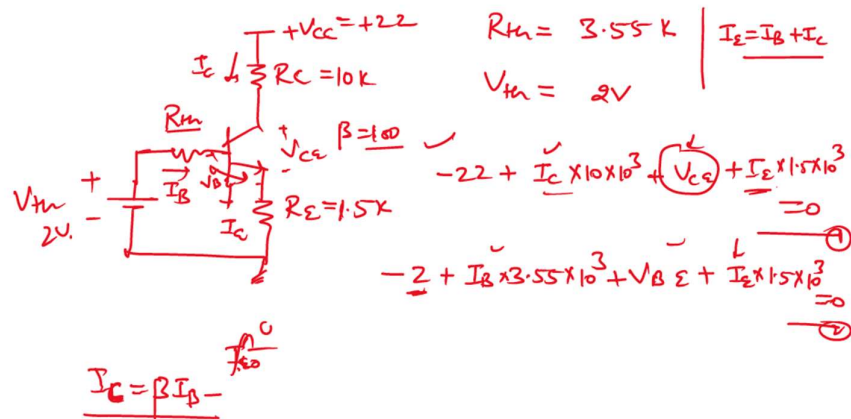 +VCC = +22
IC ↓
RC = 10K
Rth
β = 100 ✓
+
VCE
-
IB
VBE
Vth
2V.
+
-
IE
RE = 1.5K
Rth = 3.55 K
Vth = 2V
IE = IB + IC
-22 + IC × 10 × 10³ + VCE + IE × 1.5 × 10³ = 0
①
-2 + IB × 3.55 × 10³ + VBE + IE × 1.5 × 10³ = 0
②
IC = βIB -
0